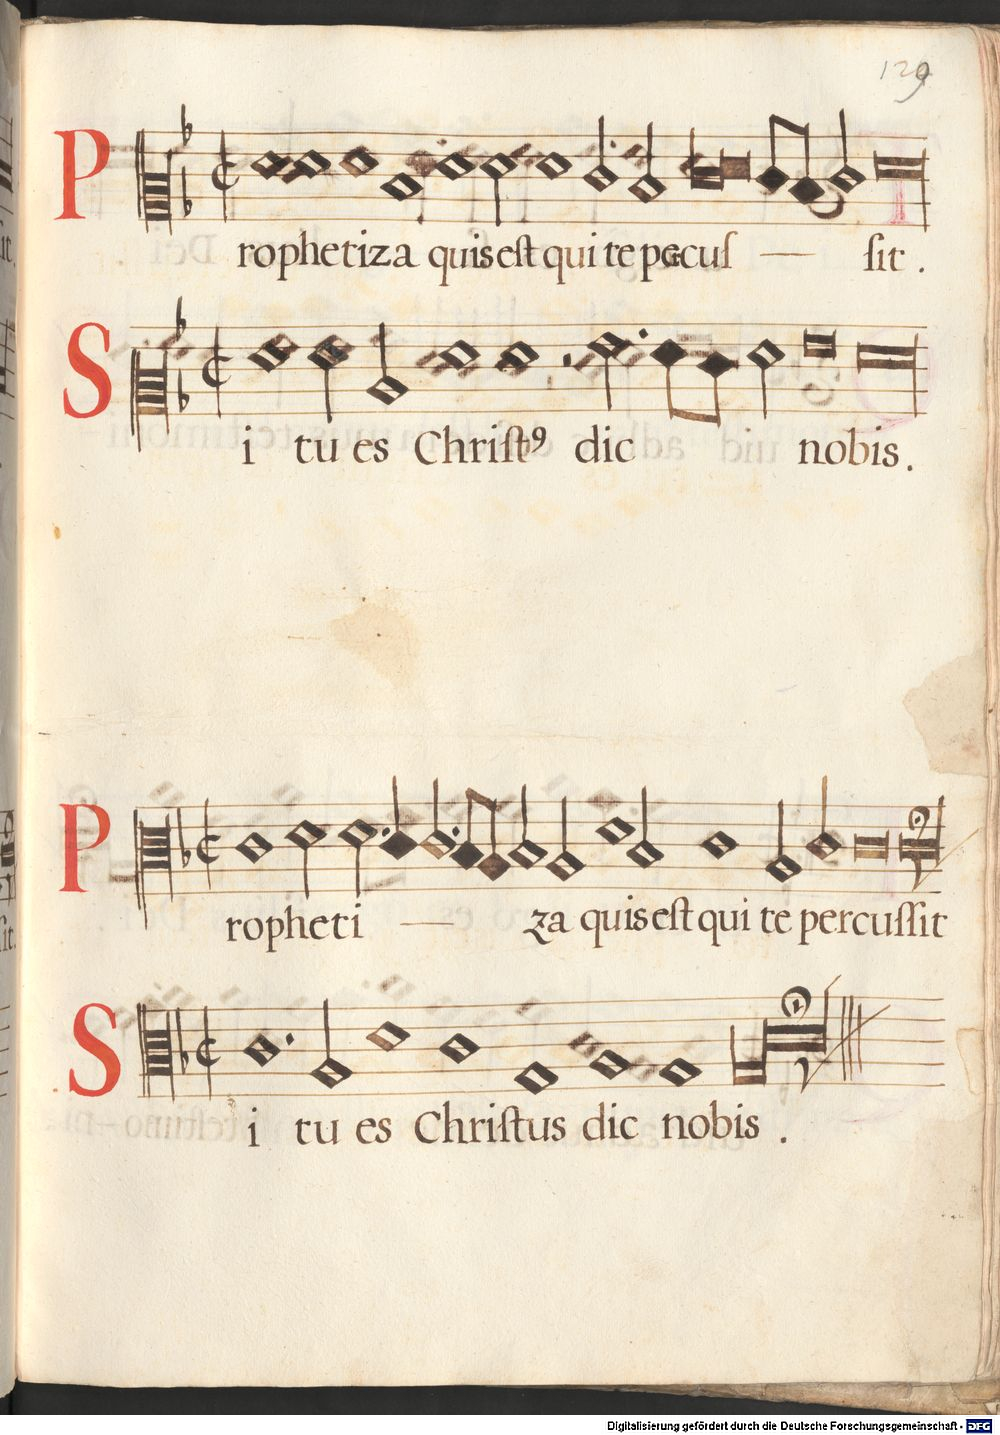 129
Prophetiza quis est qui te pecus — sit .
Si tu es Christ9 dic nobis .
Propheti — za quis est qui te percussit
Si tu es Christus dic nobis .
Digitalisierung gefördert durch die Deutsche Forschungsgemeinschaft - DFG